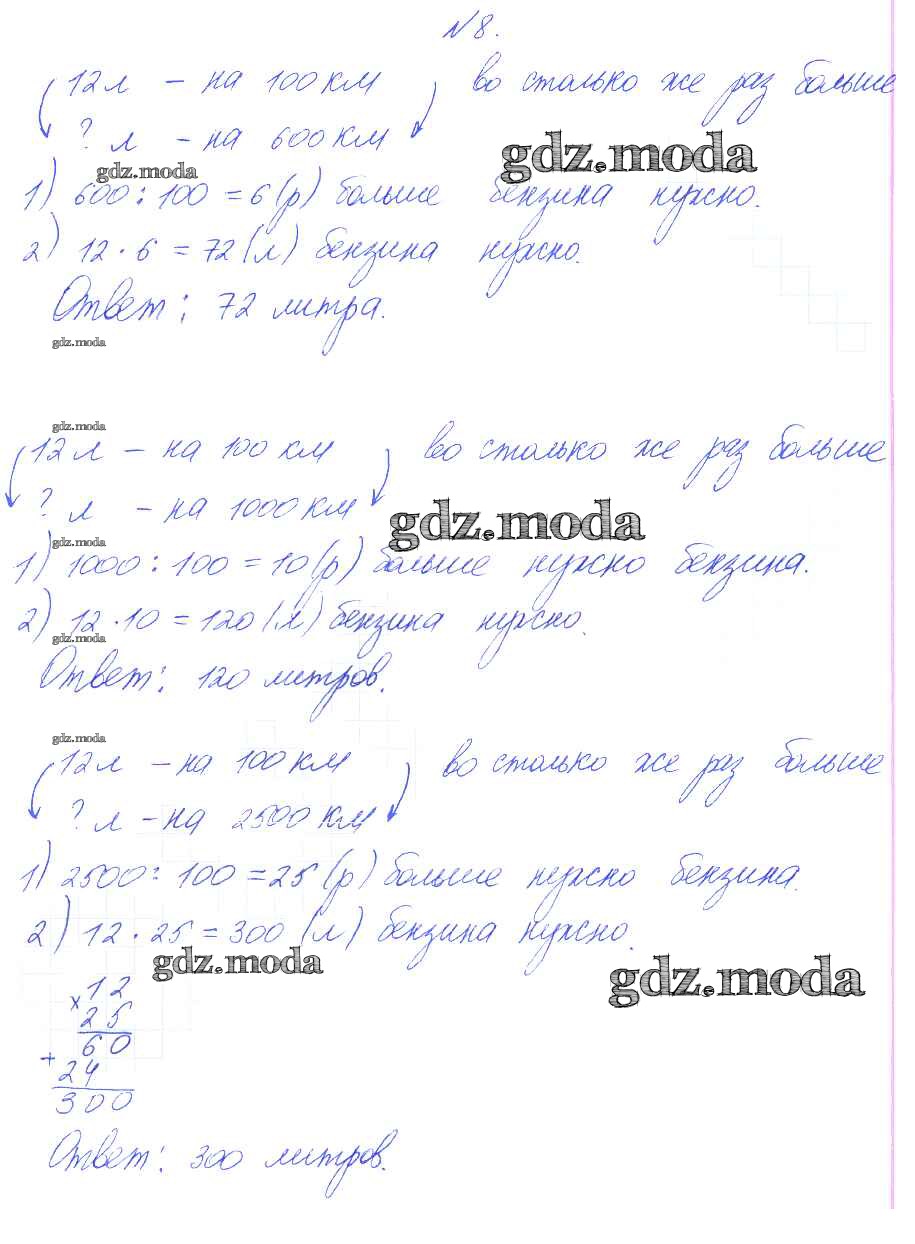 № 8.
12 л – на 100 км во столько же раз больше
? л – на 600 км
gdz.moda
gdz.moda
1) 600 : 100 = 6 (р) больше бензина нужно.
2) 12 · 6 = 72 (л) бензина нужно.
Ответ: 72 литра.
gdz.moda
gdz.moda
12 л – на 100 км во столько же раз больше
? л – на 1000 км
gdz.moda
gdz.moda
1) 1000 : 100 = 10 (р) больше нужно бензина.
2) 12 · 10 = 120 (л) бензина нужно.
gdz.moda
Ответ: 120 литров.
gdz.moda
12 л – на 100 км во столько же раз больше
? л – на 2500 км
1) 2500 : 100 = 25 (р) больше нужно бензина.
2) 12 · 25 = 300 (л) бензина нужно.
gdz.moda
gdz.moda
х 12
25
60
+
24
300
Ответ: 300 литров.